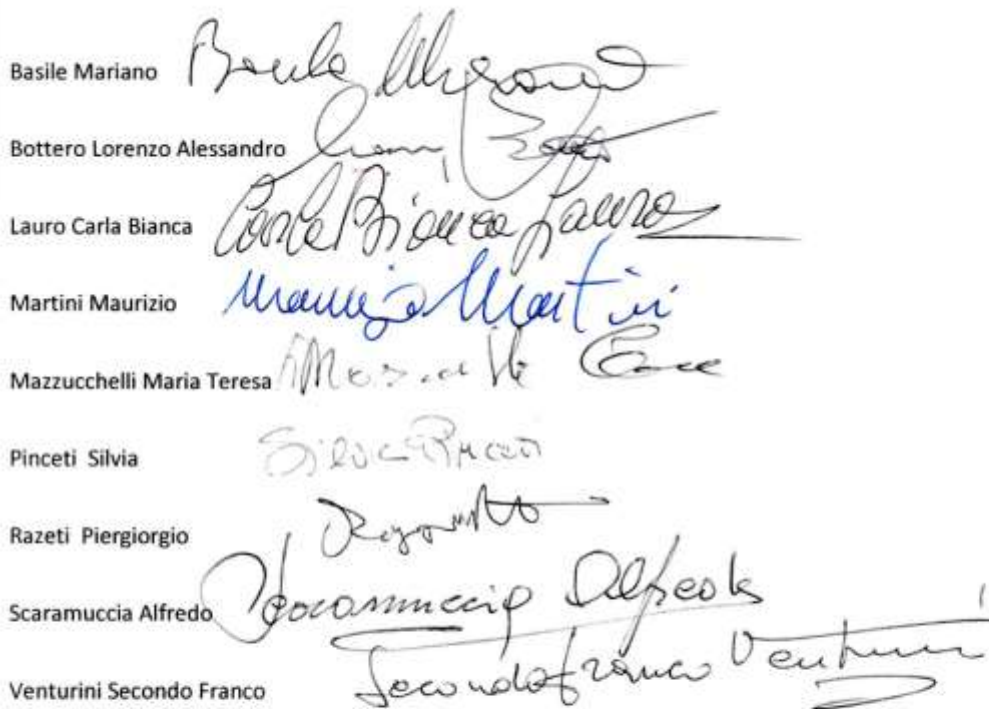 Basile Mariano Basile Mariano
Bottero Lorenzo Alessandro
Lauro Carla Bianca Carla Bianca Lauro
Martini Maurizio Maurizio Martini
Mazzucchelli Maria Teresa
Pinceti Silvia Silvia Pinceti
Razeti Piergiorgio
Scaramuccia Alfredo Scaramuccia Alfredo
Venturini Secondo Franco Secondo Franco Venturini